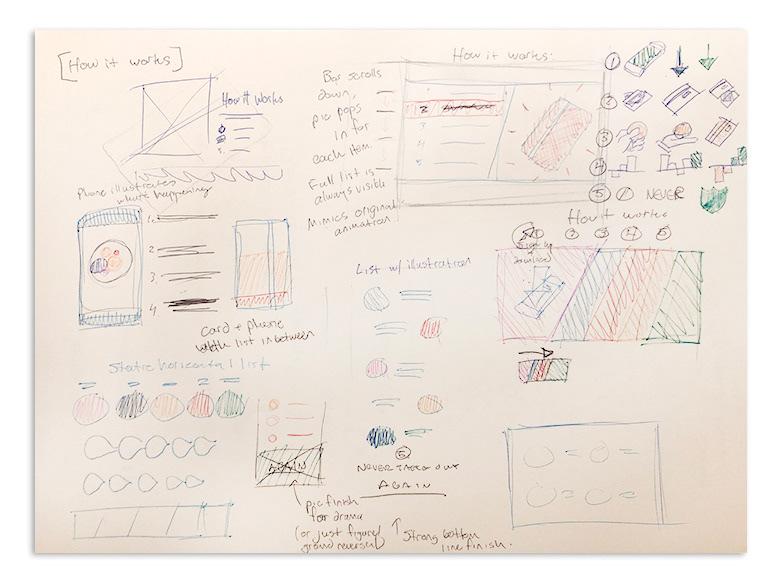 [How it works]
How it works
Phone illustrates
what's happening
1.
2.
3.
4.
card + phone
with list in between
Static horizontal list
AGAIN
pic finish
for drama
(or just figure/
ground reversed)
Bar scrolls
down,
pic pops
in for
each item.
Full list is
always visible
Mimics original
animation
How it works:
2
3
4
5
List w/ illustration
5
NEVER
AGAIN
Strong bottom
line finish.
1
2
3
4
5
NEVER
How it works
2
3
4
5
Sign up